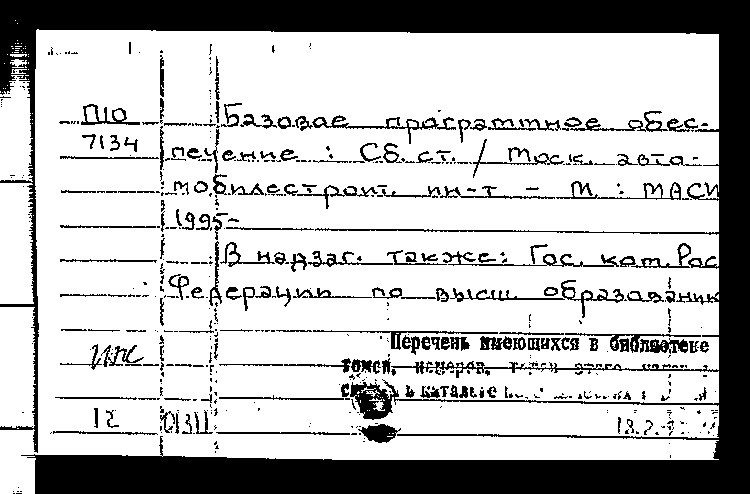 П10
7134
Базовае праграммное обес-
печение : Сб. ст. / Моск. авто-
мобилестроит. ин-т - М. : МАСИ
1995-
В надзаг. также: Гос. ком. Рос
Федерации по высш. образованию
Перечень имеющихся в библиотеке
томов, номеров,
в каталоге
12 01311
18.2.